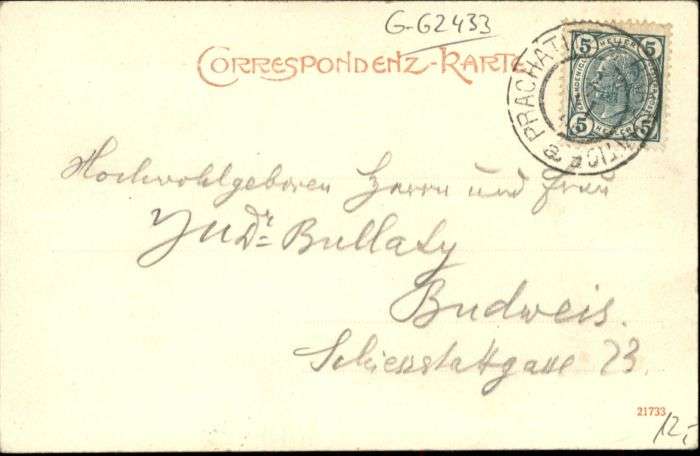 G-G2433
CORRESPONDENZ-KARTE
5 HELLER 5
5 HELLER 5
PRACHATI
Hochwohlgeboren Herrn und Frau
JUDr. Bullaty
Budweis.
Schiesstattgasse 23.
21733
12,-